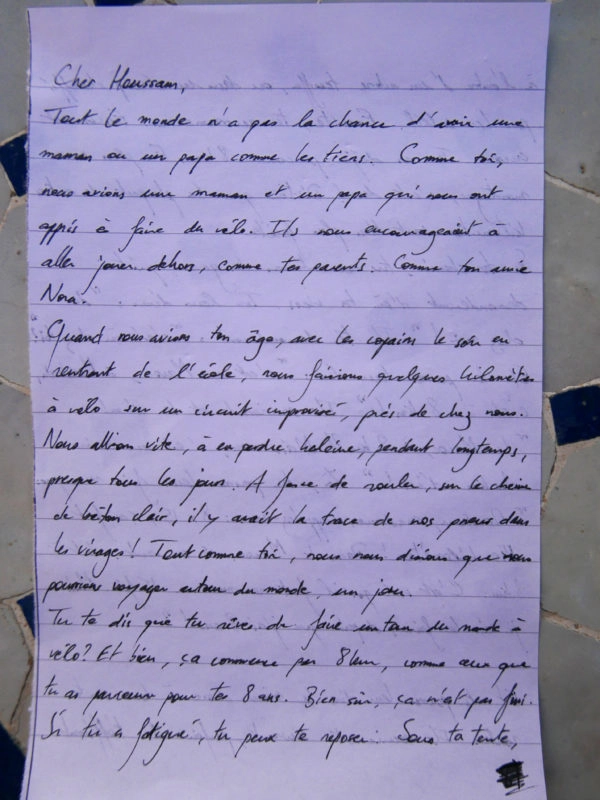 Cher Houssam,
Tout le monde n'a pas la chance d'avoir une
maman ou un papa comme les tiens. Comme toi,
nous avions une maman et un papa qui nous ont
appris à faire du vélo. Ils nous encourageaient à
aller jouer dehors, comme tes parents. Comme ton amie
Nora.
Quand nous avions ton âge, avec les copains le soir en
rentrant de l'école, nous faisions quelques kilomètres
à vélo sur un circuit improvisé, près de chez nous.
Nous allions vite, à en perdre haleine, pendant longtemps,
presque tous les jours. A force de rouler, sur le chemin
de béton clair, il y avait la trace de nos pneus dans
les virages! Tout comme toi, nous nous disions que nous
pourrions voyager autour du monde, un jour.
Tu te dis que tu rêves de faire un tour du monde à
vélo? Et bien, ça commence par 8 km, comme ceux que
tu as parcouru pour tes 8 ans. Bien sûr, ça n'est pas fini.
Si tu a fatigué, tu peux te reposer. Sous ta tente,